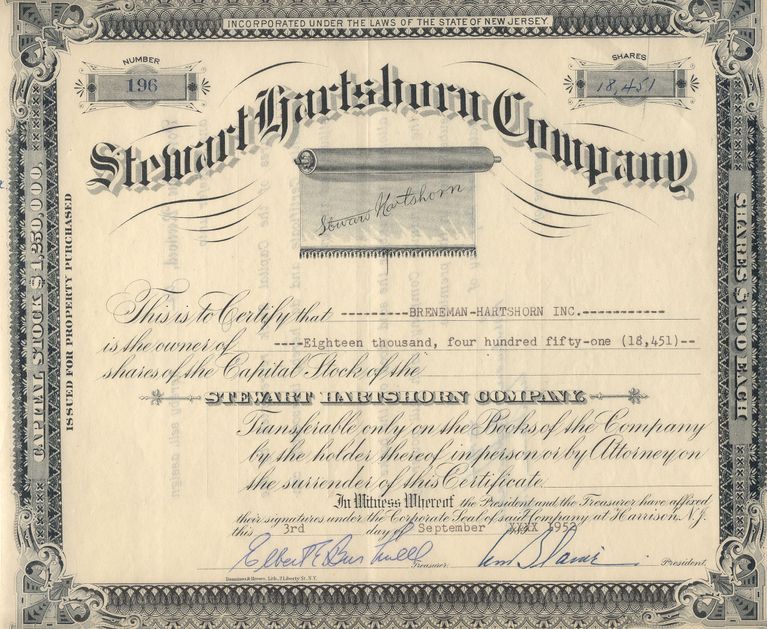 INCORPORATED UNDER THE LAWS OF THE STATE OF NEW JERSEY
NUMBER
196
SHARES
18,451
Stewart Hartshorn Company
Stewart Hartshorn
CAPITAL STOCK $1,250,000.
ISSUED FOR PROPERTY PURCHASED
SHARES $100 EACH
This is to Certify that ----------BRENEMAN-HARTSHORN INC.------------
is the owner of ----Eighteen thousand, four hundred fifty-one (18,451)--
shares of the Capital Stock of the
STEWART HARTSHORN COMPANY.
Transferable only on the Books of the Company
by the holder thereof in person or by Attorney on
the surrender of this Certificate.
In Witness Whereof the President and the Treasurer have affixed
their signatures under the Corporate Seal of said Company at Harrison, N.J.
this 3rd day of September XXXX 1952
Treasurer. President.
Lith., 7 Liberty St. N.Y.